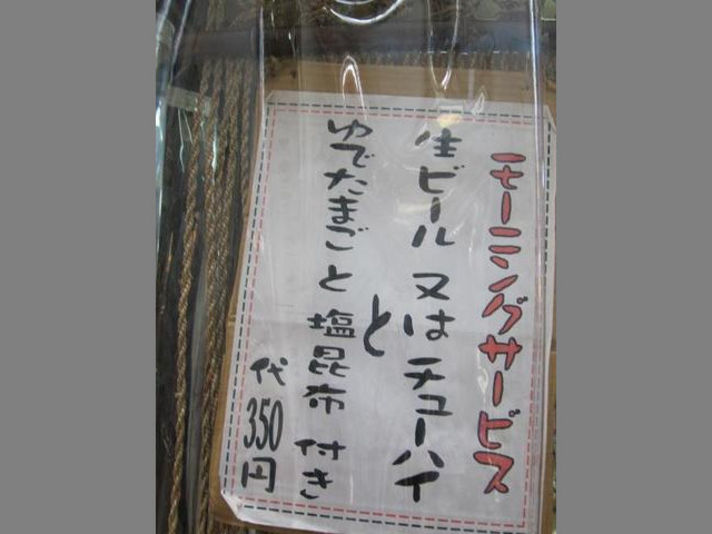 モーニングサービス
生ビール 又は チューハイ
と
ゆでたまご と 塩昆布 付き
代350円